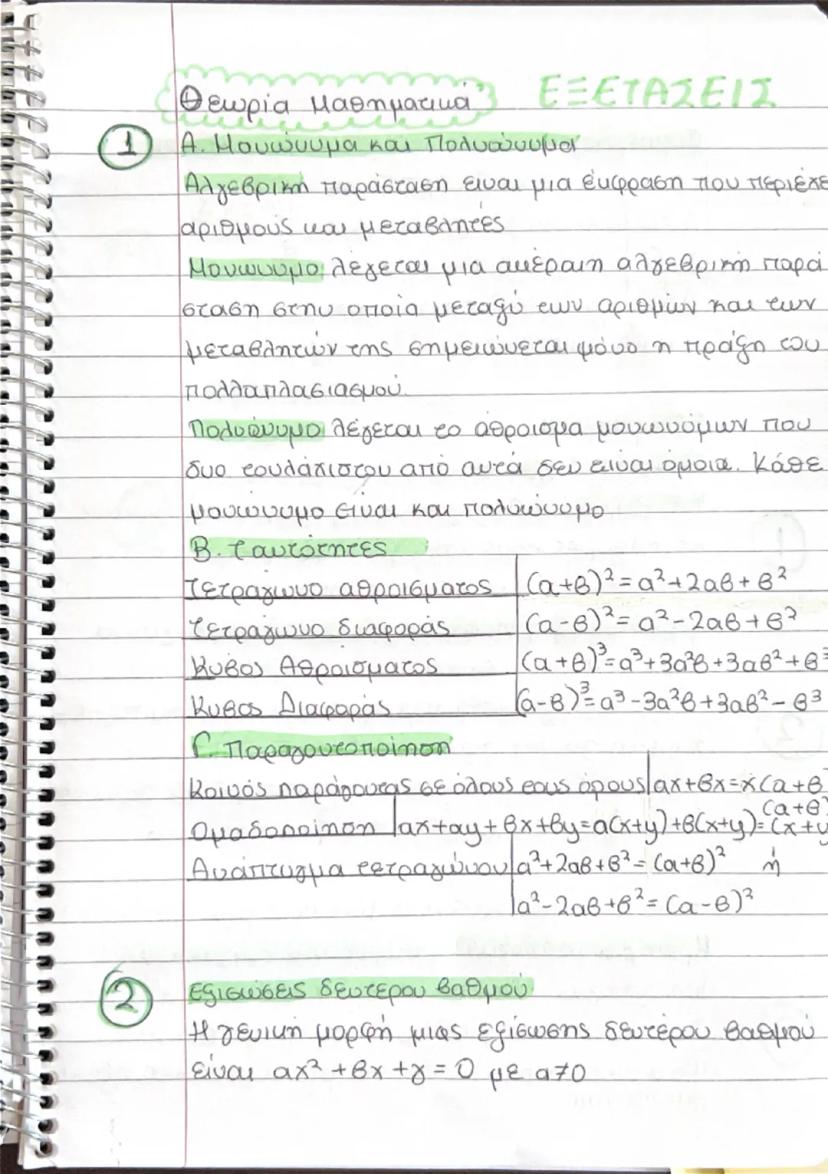 Θεωρία Μαθηματικά ΕΞΕΤΑΣΕΙΣ
1 Α. Μονώνυμα και Πολυώνυμα
Αλγεβρική παράσταση είναι μια έκφραση που περιέχε
αριθμούς και μεταβλητές
Μονώνυμο λέγεται μια ακέραιη αλγεβρική παρά
σταση στην οποία μεταξύ των αριθμών και των
μεταβλητών της σημειώνεται μόνο η πράξη του
πολλαπλασιασμού.
Πολυώνυμο λέγεται το άθροισμα μονωνύμων που
δυο τουλάχιστον από αυτά δεν είναι όμοια. Κάθε
μονώνυμο είναι και πολυώνυμο
Β. Ταυτότητες
Τετράγωνο αθροίσματος (α+β)²=α²+2αβ+β²
Τετράγωνο διαφοράς (α-β)²=α²-2αβ+β²
Κύβος Αθροίσματος (α+β)³=α³+3α²β+3αβ²+β³
Κυβος Διαφοράς (α-β)³=α³-3α²β+3αβ²-β³
Γ. Παραγοντοποίηση
Κοινός παράγοντας σε όλους τους όρους αx+βx=x(α+β
Ομαδοποίηση αx+αy+βx+βy=α(x+y)+β(x+y)=(x+y
(α+β)
Ανάπτυγμα τετραγώνου α²+2αβ+β²=(α+β)² ή
α²-2αβ+β²=(α-β)²
2 Εξισώσεις δευτέρου βαθμού
Η γενική μορφή μιας εξίσωσης δευτέρου βαθμού
είναι αx²+βx+γ=0 με α≠0